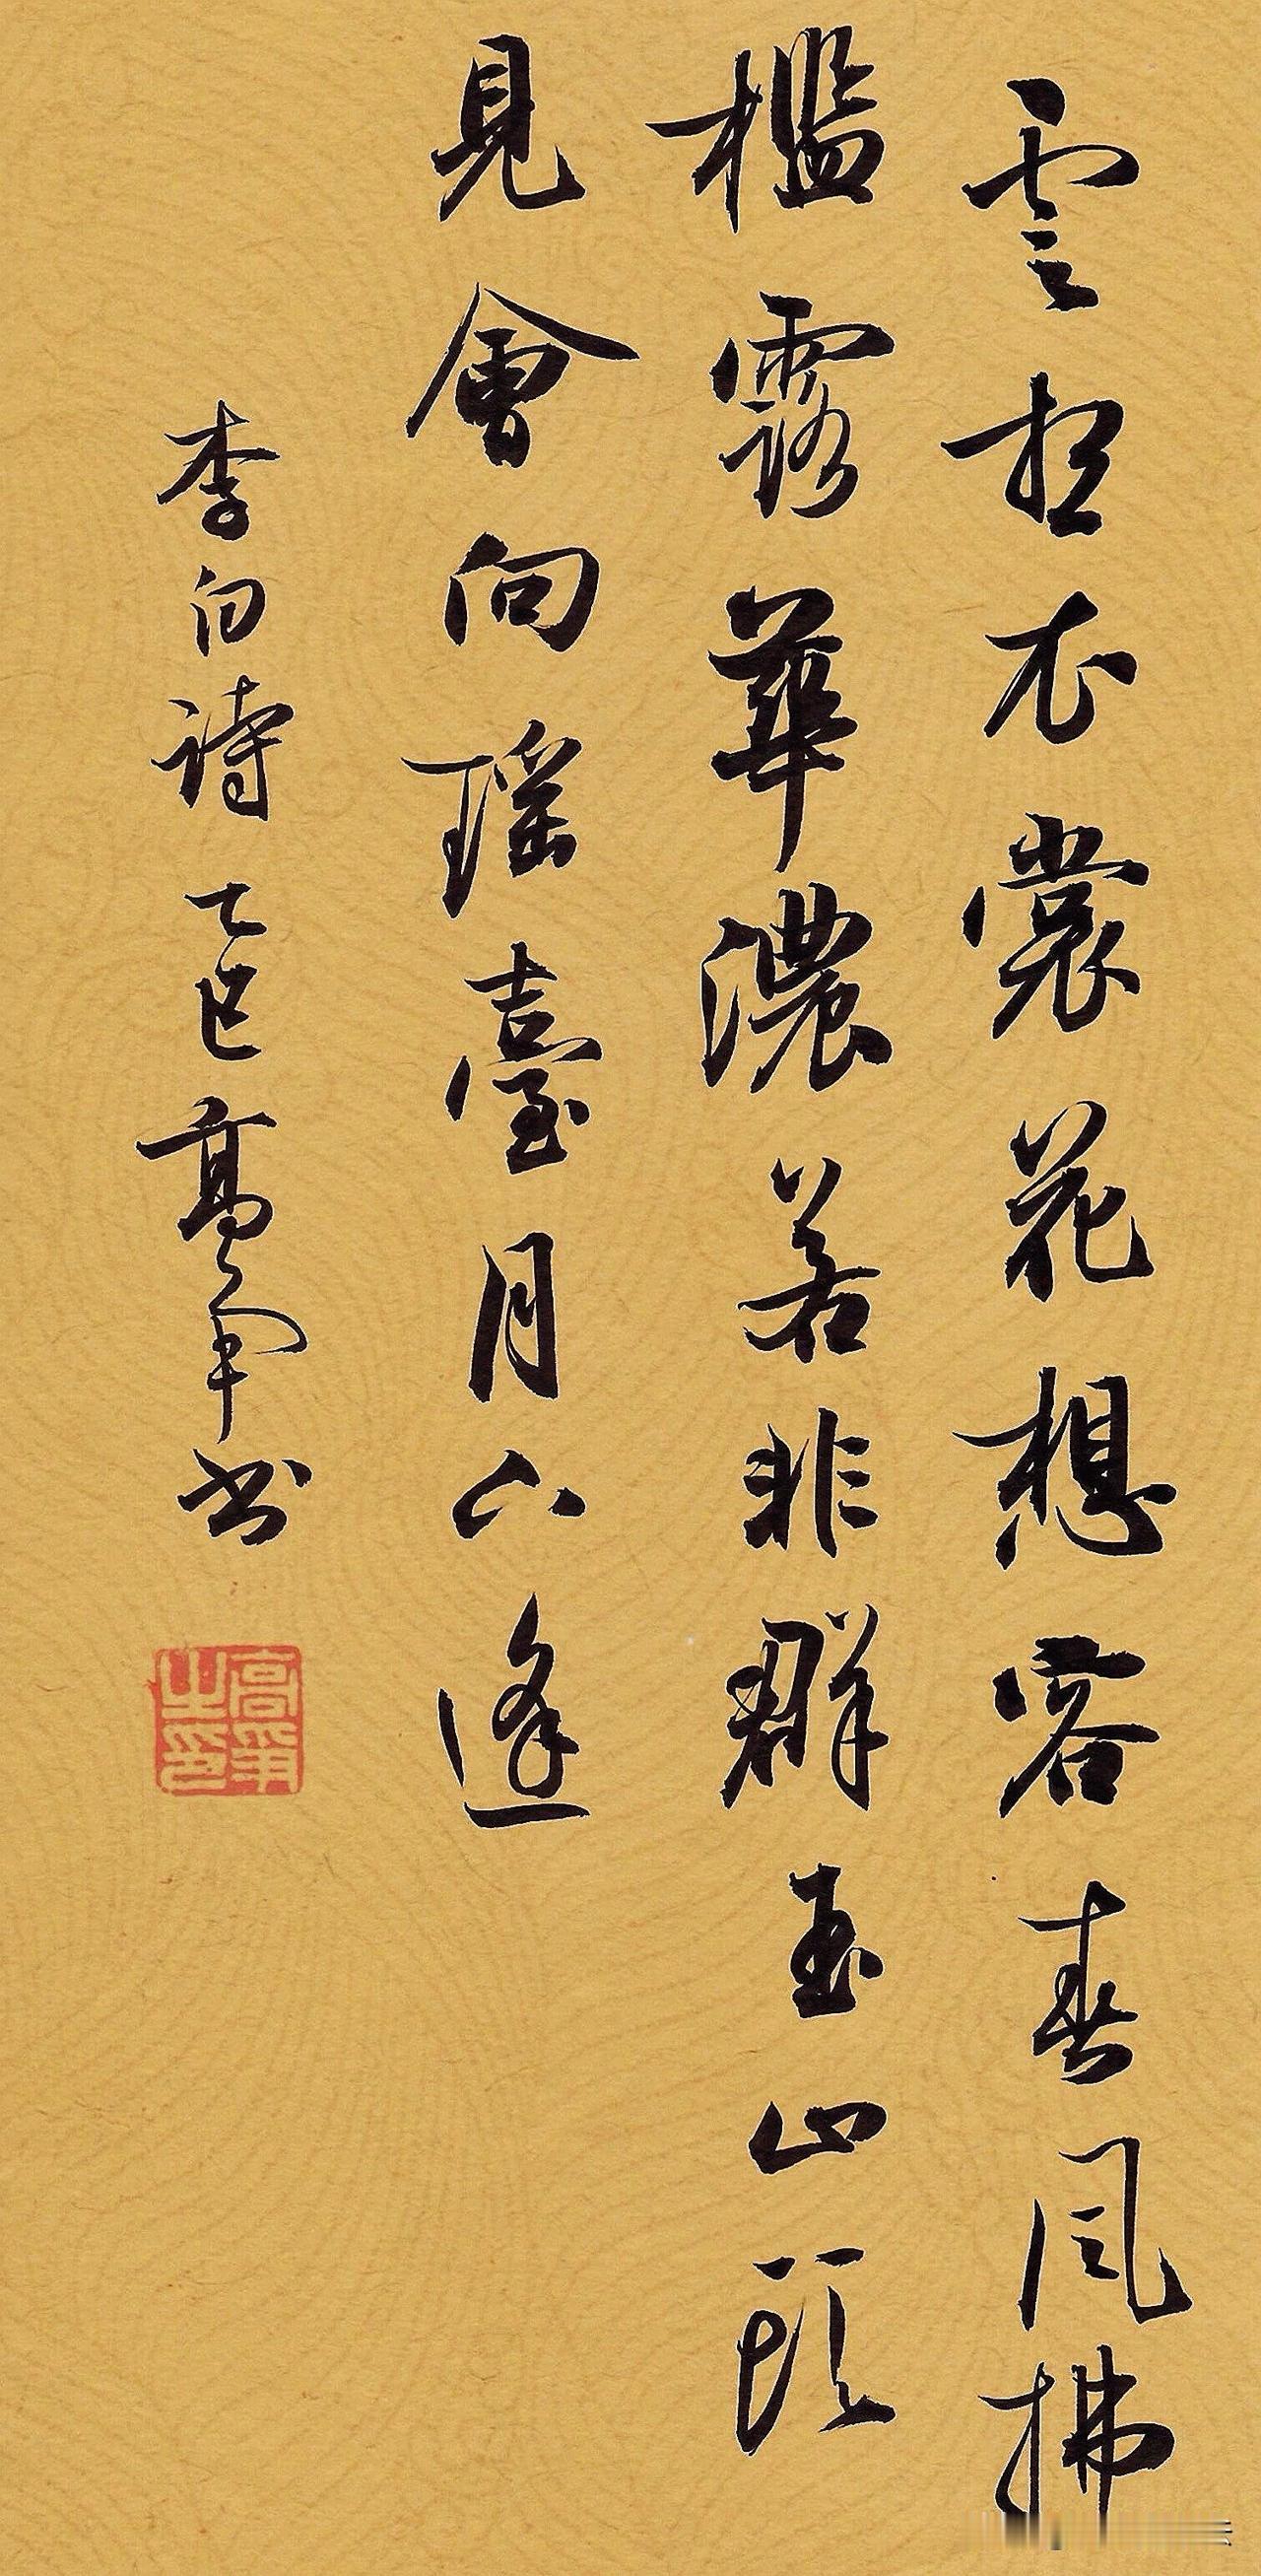 雲想衣裳花想容春風拂
檻露華濃若非群玉山頭
見會向瑤臺月下逢
李白詩乙巳高爭书
高爭之印